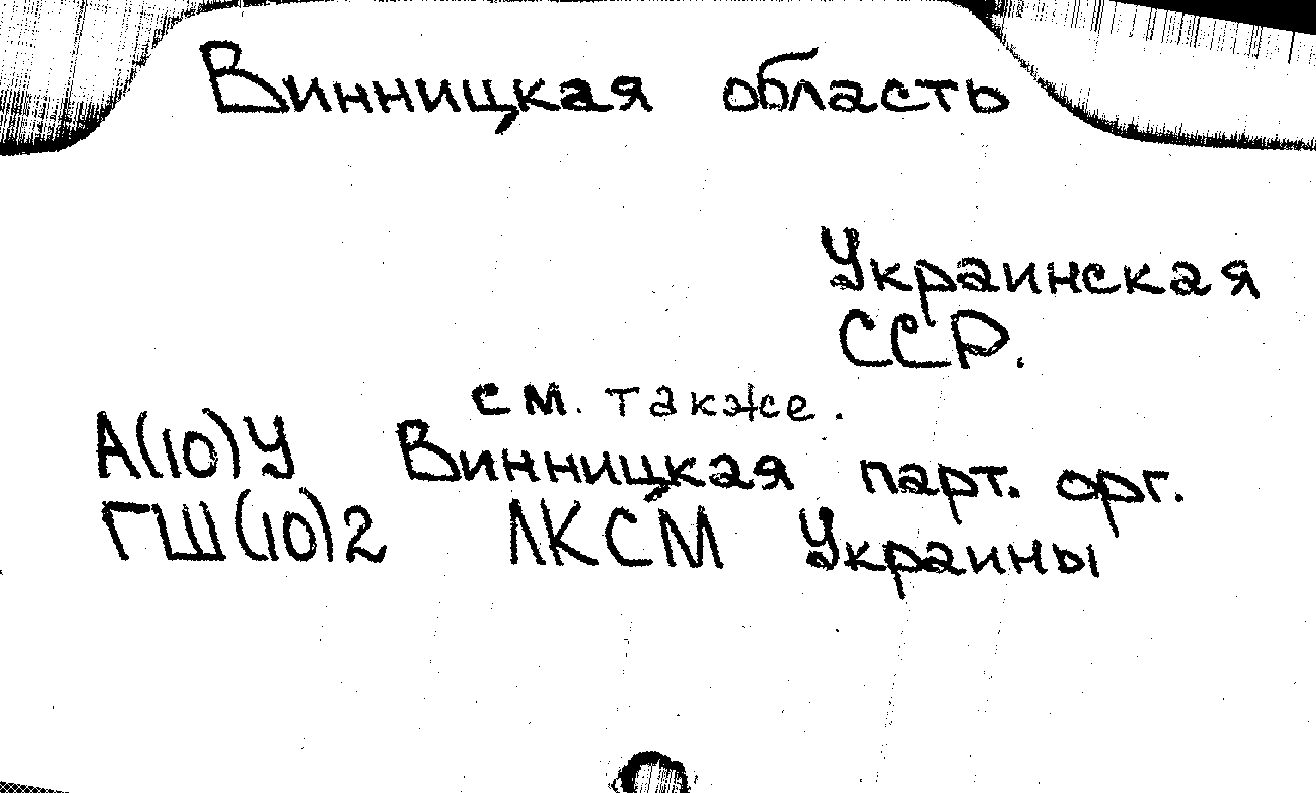 Винницкая область
Украинская
ССР.
см. также.
А(10)У Винницкая парт. орг.
ГШ(10)2 ЛКСМ Украины